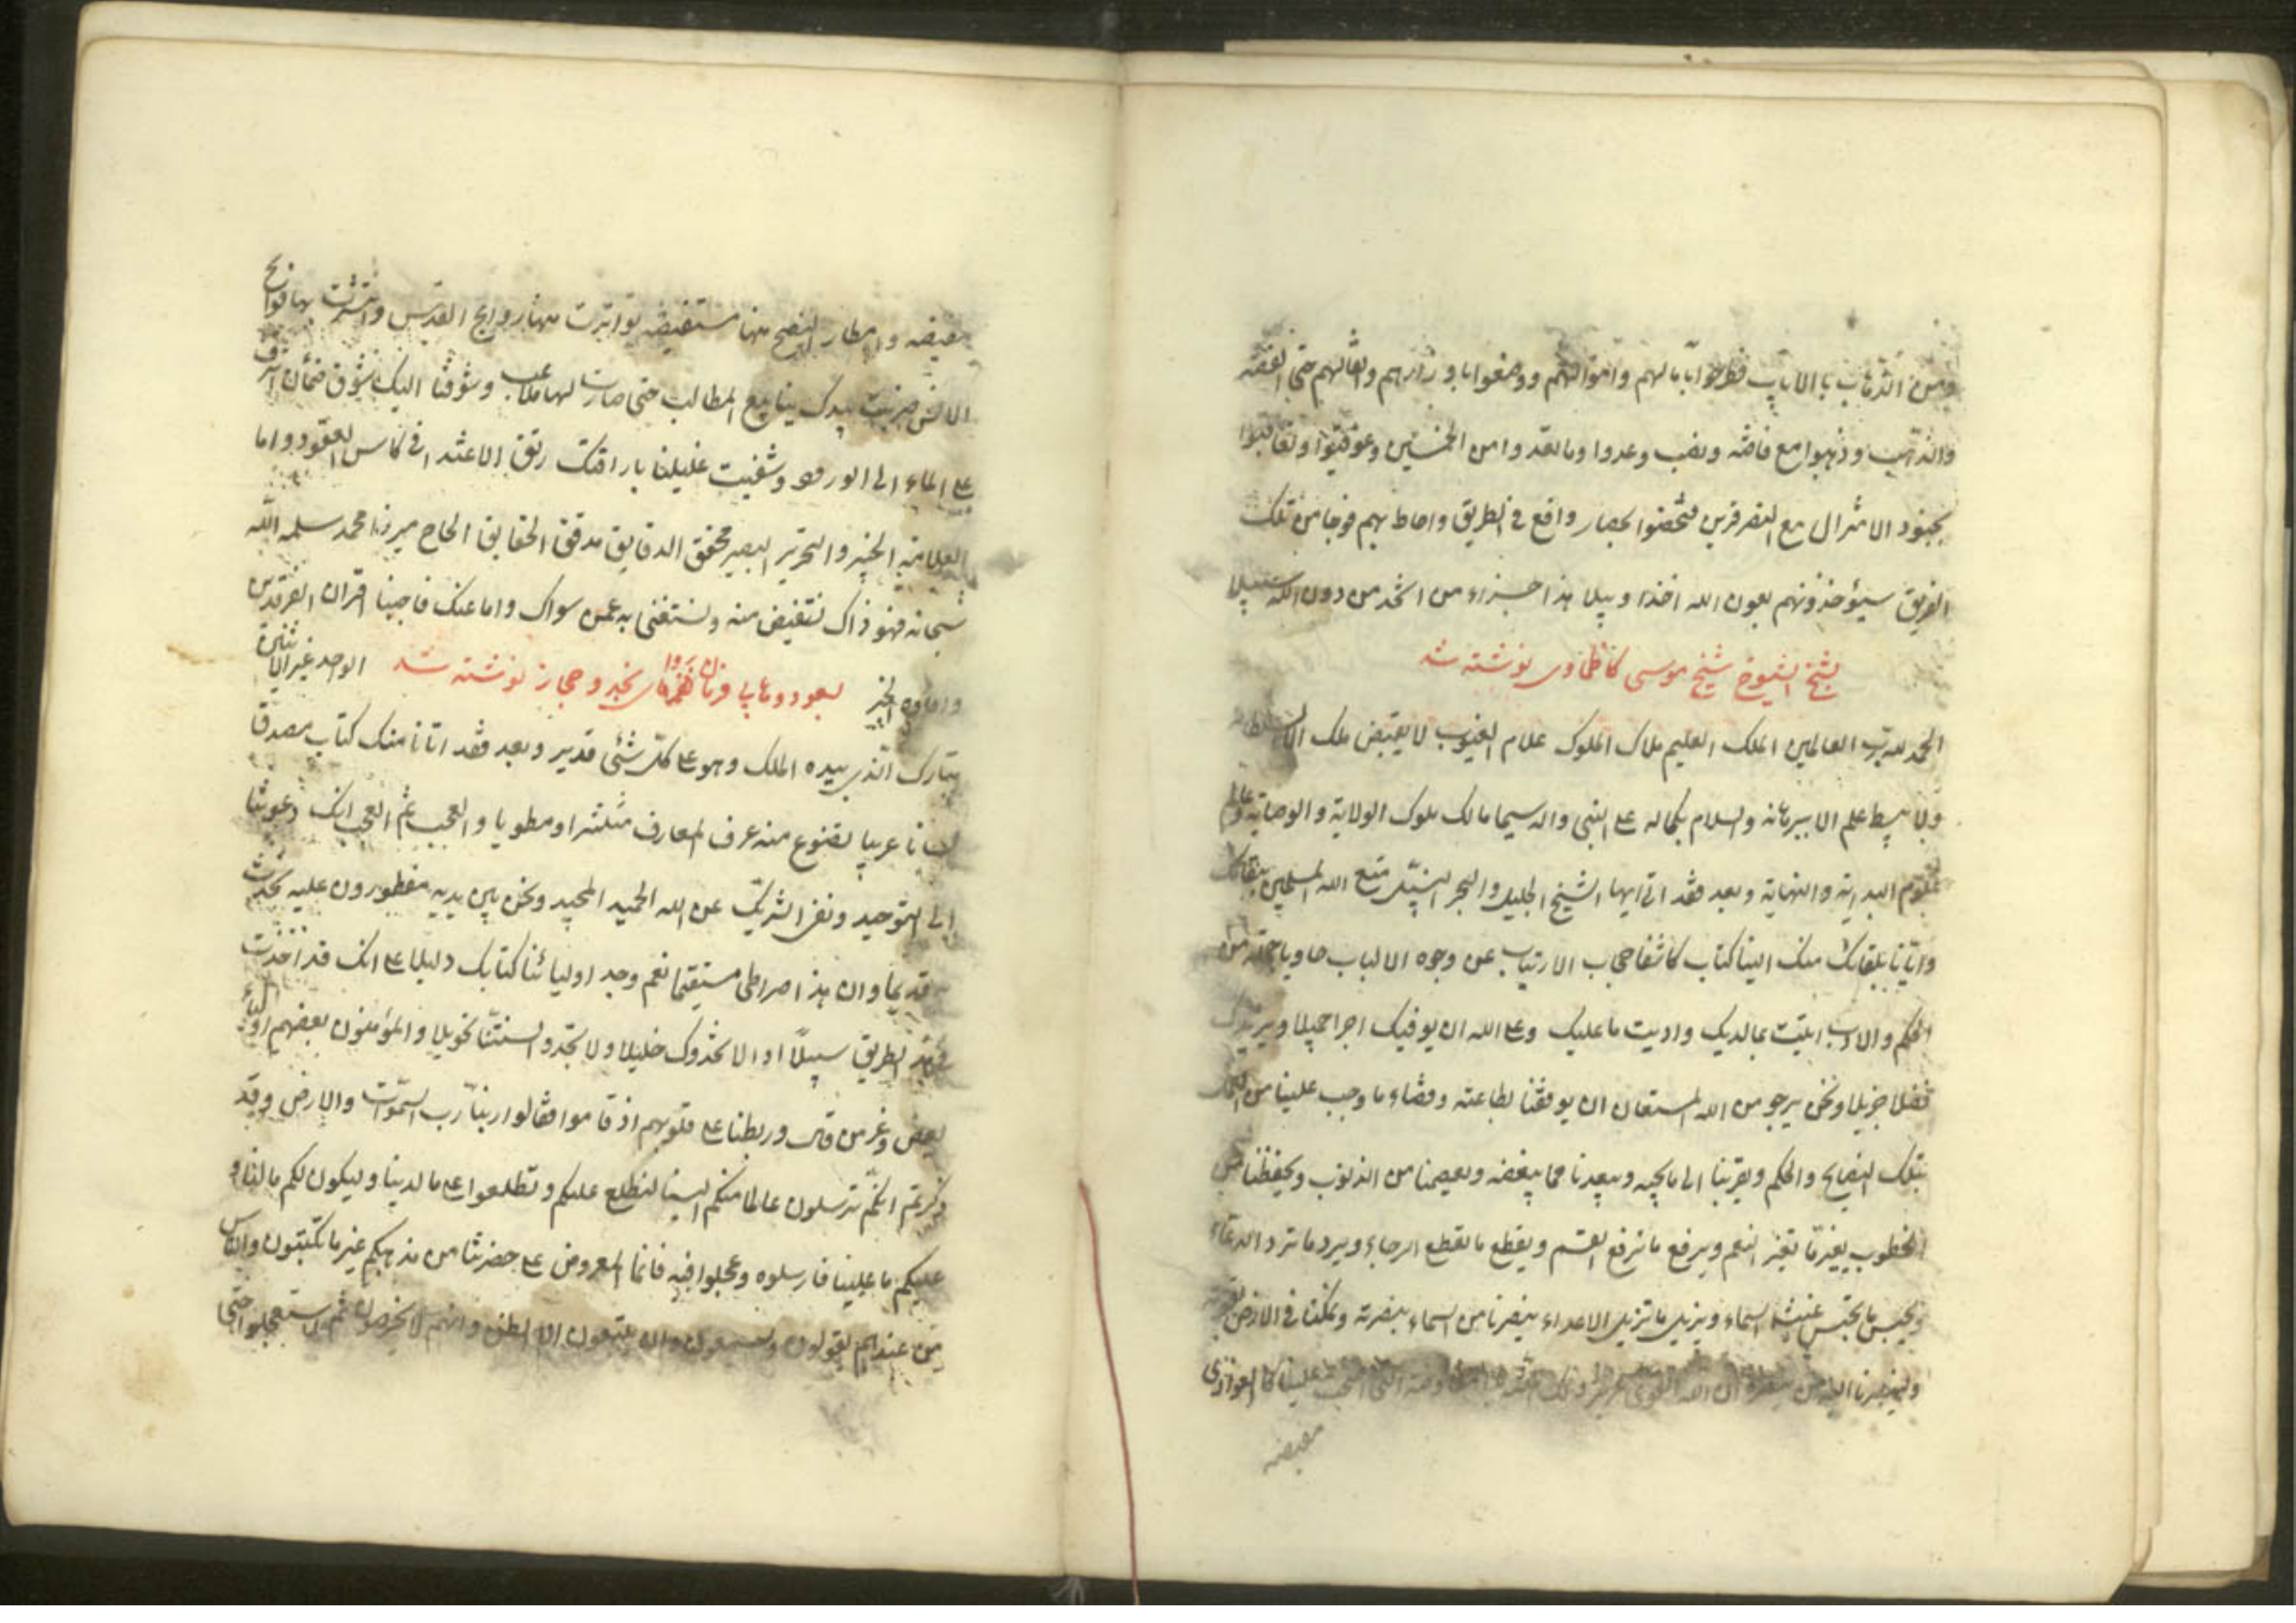 ومن الذهاب بالاياب فطرحوا بابالهم واموالهم ووضعوا باوزارهم واثقالهم حتى الفضه
والذهب وذهبوا مع فاضه ونصب وعدوا وما لقدوا من الخمسين وعوقبوا وتعاقبوا
بجنود الامثرال مع النصر قرين فتحصنوا بحصار واقع في الطريق واحاط بهم فوجا من تلك
الفريق سيؤخذونهم بعون الله اخذا وبيلا هذا جزاء من اتخذ من دون الله سبيلا
بشيخ الشيوخ شيخ موسى كاظماوى نوشته شد
الحمد لله رب العالمين الملك العليم ملاك الملوك علام الغيوب لا يقبض ملك الا بسلطانه
ولا يبسط علم الا ببرهانه والسلام بكماله على النبي واله سيما مالك ملوك الولاية والوصاية وعالم
علوم البداية والنهاية وبعد فقد اتى ايها الشيخ الجليل والبحر النبيل متع الله المسلمين ببقائك
واتانا بلقائك منك الينا كتاب كاشفا حجاب الارتياب عن وجوه الالباب حاويا جملة من
الحكم والاداب ابليت بمالديك واديت ما عليك وعلى الله ان يوفيك اجرا جميلا ويزيدك
فضلا جزيلا ونحن نرجو من الله المستعان ان يوفقنا لطاعته وقضاء ما وجب علينا من
بتلك النصايح والحكم ويقربنا الى ما يحبه ويبعدنا مما يبغضه ويعصمنا من الذنوب ويحفظنا من
الخطوب يغير ما تغير النعم ويرفع ما ترفع القسم ويقطع ما يقطع الرجاء ويرد ما ترد الدعاء
ويحبس ما يحبس غيث السماء ويزيل ما تزيل الاعداء ينصرنا من السماء بنصرته ويمكننا في الارض
ولينصرنا الله من ينصره ان الله لقوي عزيز علينا كالعوادى
مفيضه
مفيضه وامطار النصح منها مستفيضه تواترت منها روايح القدس وانتشرت بها فوايح
الانس ضربت بيدك ينابيع المطالب حتى صارت لها ملاعب وشوقنا اليك شوق ضمأن اشرف
على الماء الى الورود وشفيت غليلنا باراقتك ريق الاعتذار في كاس العقود واما
العلامة الخبير والنحرير البصير محقق الدقايق مدقق الحقايق الحاج ميرزا محمد سلمه الله
سبحانه فهو ذاك نستفيض منه ونستغنى به عمن سواك واما عنك فاحببنا اقتران الفرقدين
الخير بسعود وهابى فرمان روا نجد وحجاز نوشته شد الواحد غير الاثنين
تبارك الذي بيده الملك وهو على كل شئى قدير وبعد فقد اتانا منك كتاب مصدقا
لسانا عربيا تضوع منه عرف المعارف منتشرا ومطويا والعجب ثم العجب انك دعوتنا
الى التوحيد ونفى الشريك عن الله الحميد المجيد ونحن بين يديه مفطورون عليه
قديما وان هذا صراطى مستقيما نعم وجد اوليائنا كتابك دليلا على انك قد اتخذت
الطريق سبيلا اذا لاتخذوك خليلا ولا تجد لسنتنا تحويلا والمؤمنون بعضهم اولياء
بعض وعز من قائل وربطنا على قلوبهم اذ قاموا فقالوا ربنا رب السموات والارض وقد
ذكرتم انكم ترسلون عالما منكم الينا لنطلع عليكم وتطلعوا على ما لدينا وليكون لكم ما لنا و
عليكم ما علينا فارسلوه وعجلوا فيه فانما المعروض على حضرتنا من مذهبكم غير ما تكتبون والناس
من عندهم يقولون وان يتبعون الا الظن وان هم الا يخرصون ثم استعجلوا حتى